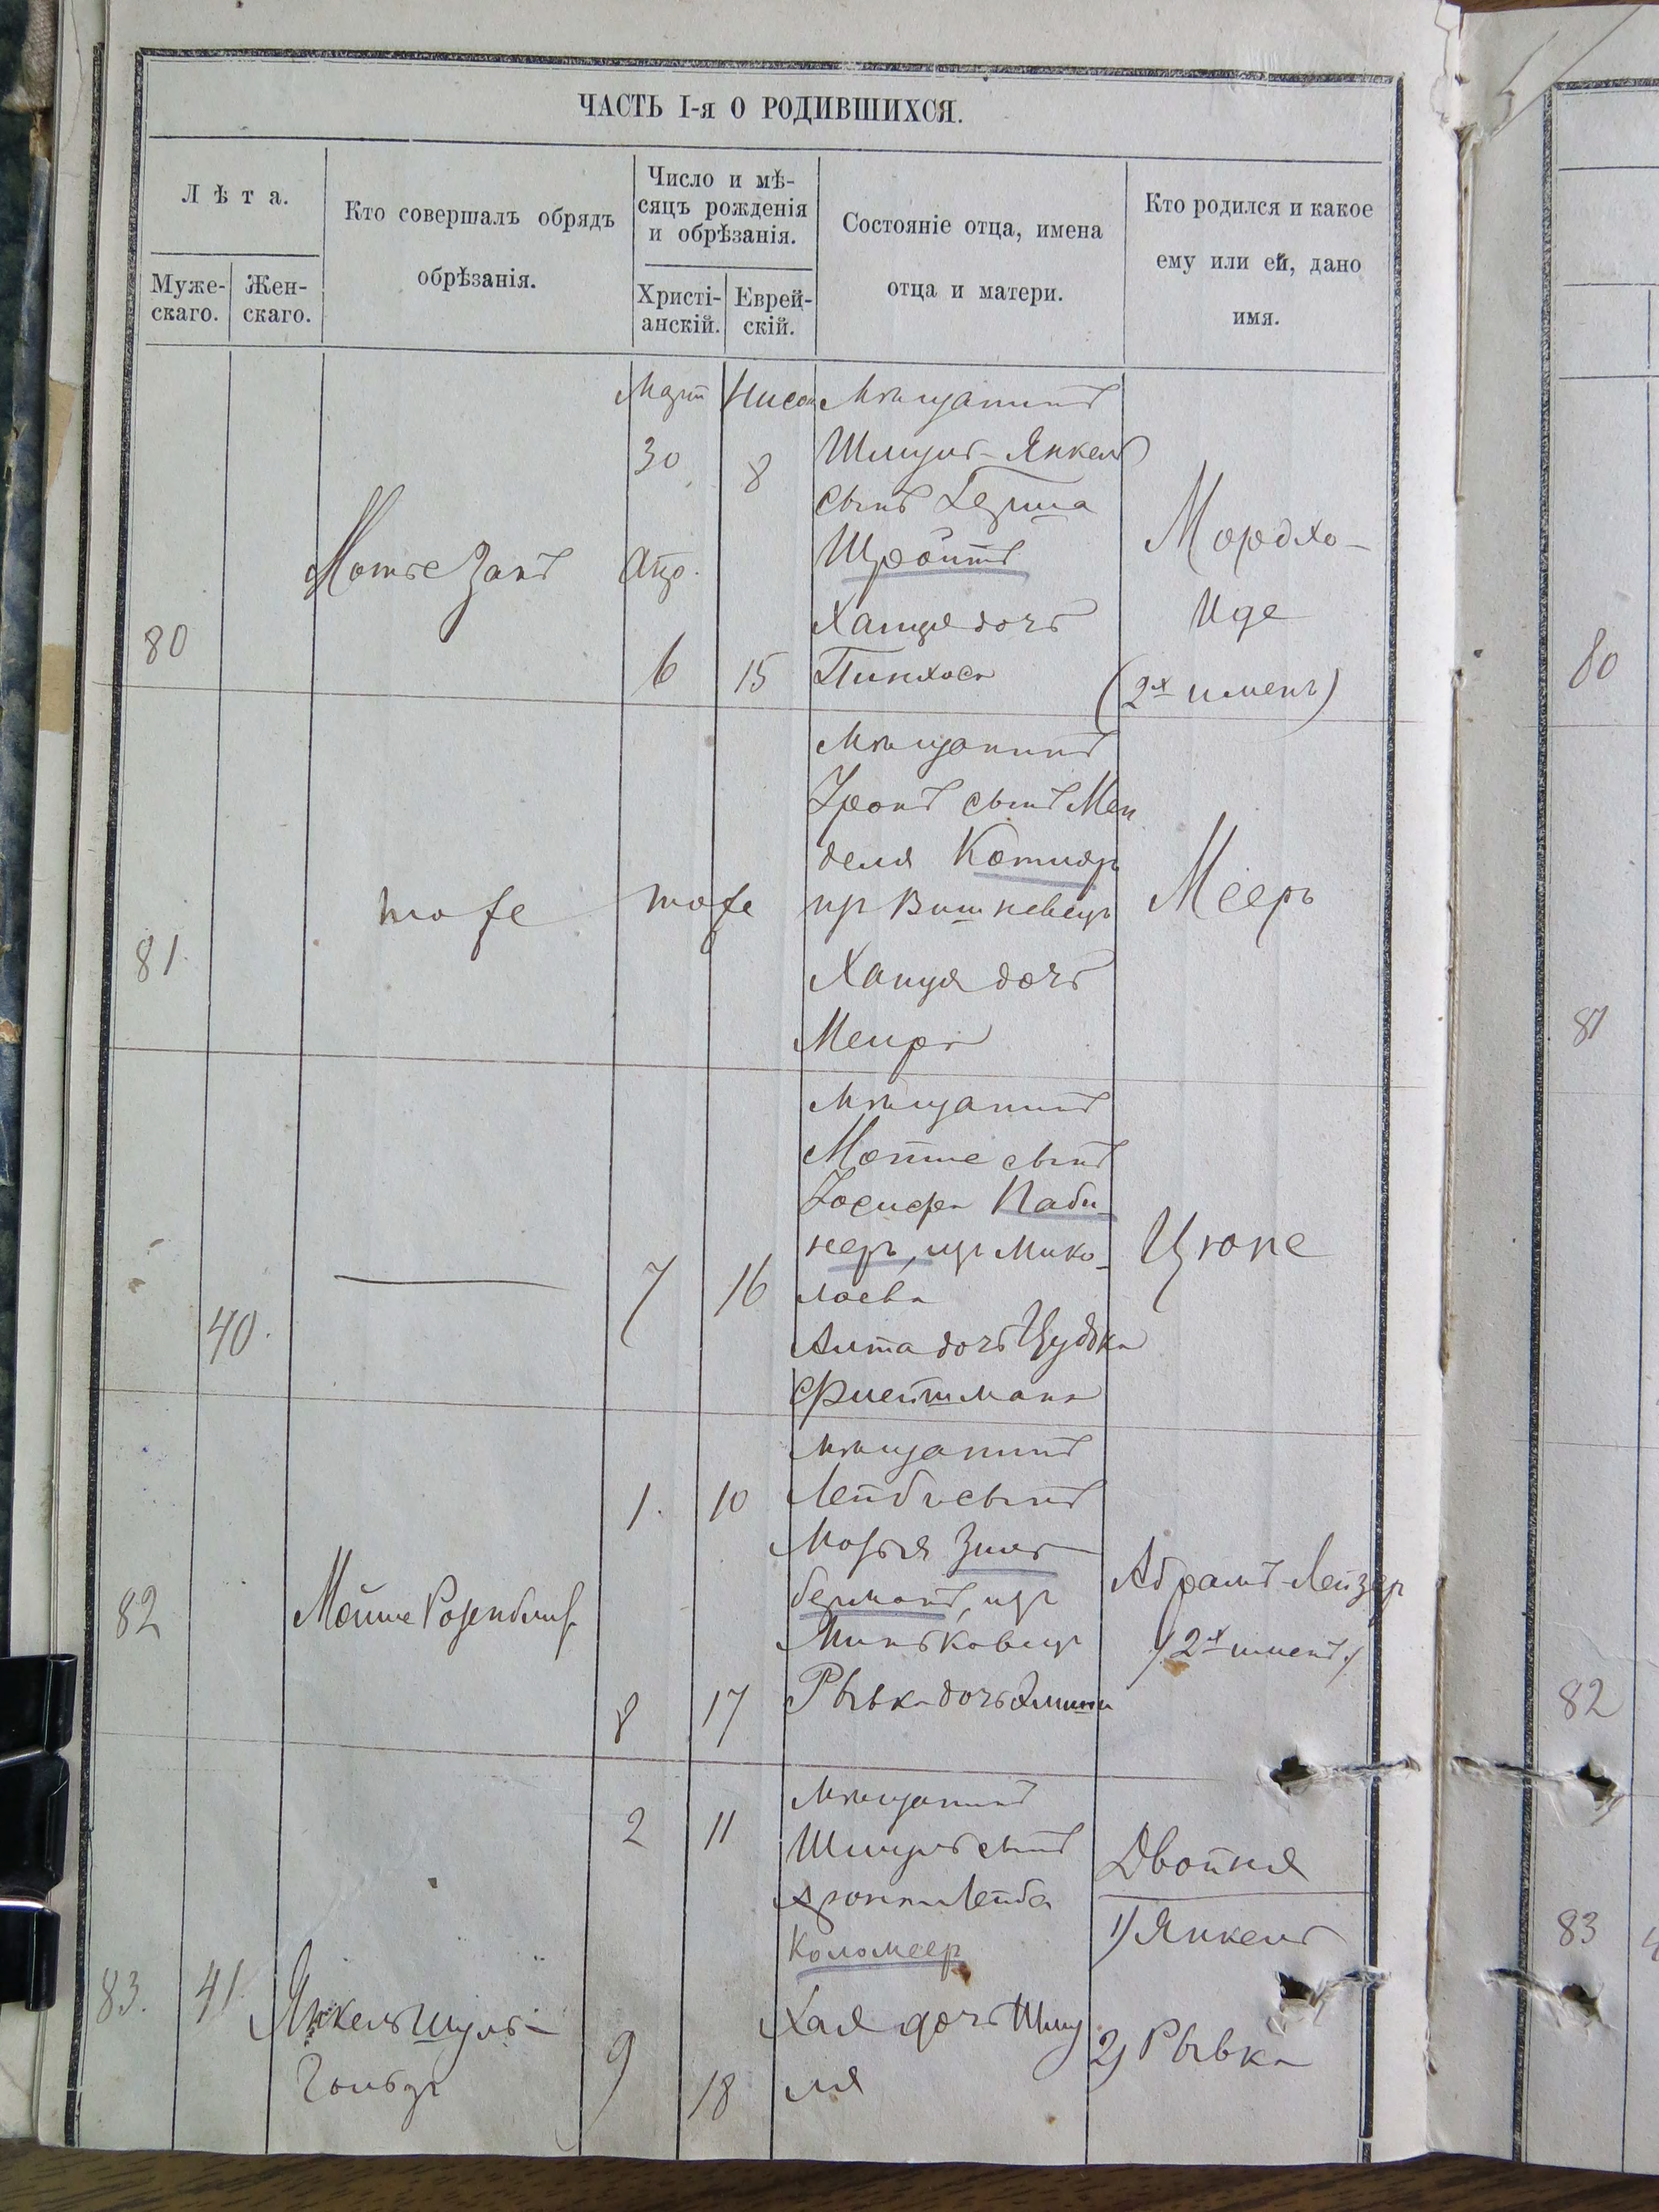 ЧАСТЬ I-я О РОДИВШИХСЯ.
Лѣта.
Муже-
скаго.
Жен-
скаго.
Кто совершалъ обрядъ
обрѣзанія.
Число и мѣ-
сяцъ рожденія
и обрѣзанія.
Христі-
анскій.
Еврей-
скій.
Состояніе отца, имена
отца и матери.
Кто родился и какое
ему или ей, дано
имя.
80
Мотье Закъ
Март
30
Апр.
6
Нисон
8
15
Мѣщанинъ
Шмуль-Янкель
сынъ Герша
Шройтъ
Ханця дочь
Пинхоса
Мордхо-
Иде
(2х именъ)
80
81.
тоже
тоже
Мѣщанинъ
сынъ Мен
деля Котляръ
из Вишневецъ
Ханця дочь
Меира
Мееръ
81
40.
7
16
Мѣщанинъ
Мотше сынъ
Іосифа Наби-
херъ, изъ Нико-
лаева
Алта дочь
Флейтмана
Цюпе
82
Мойше Розенблит
1.
8
10
17
Мѣщанинъ
Лейбъ сынъ
Мойсея Зиль-
берманъ, изъ
Миньковецъ
Рывка дочь
Абрамъ-Лейзер
(2х именъ)
82
83.
41.
Янкель Шуль-
Гольдъ
2
9
11
18
Мѣщанинъ
Шмуль сынъ
Арона Лейба
Коломеер
Хая дочь Шму
ля
Двойня
1) Янкель
2) Рывка
83
4